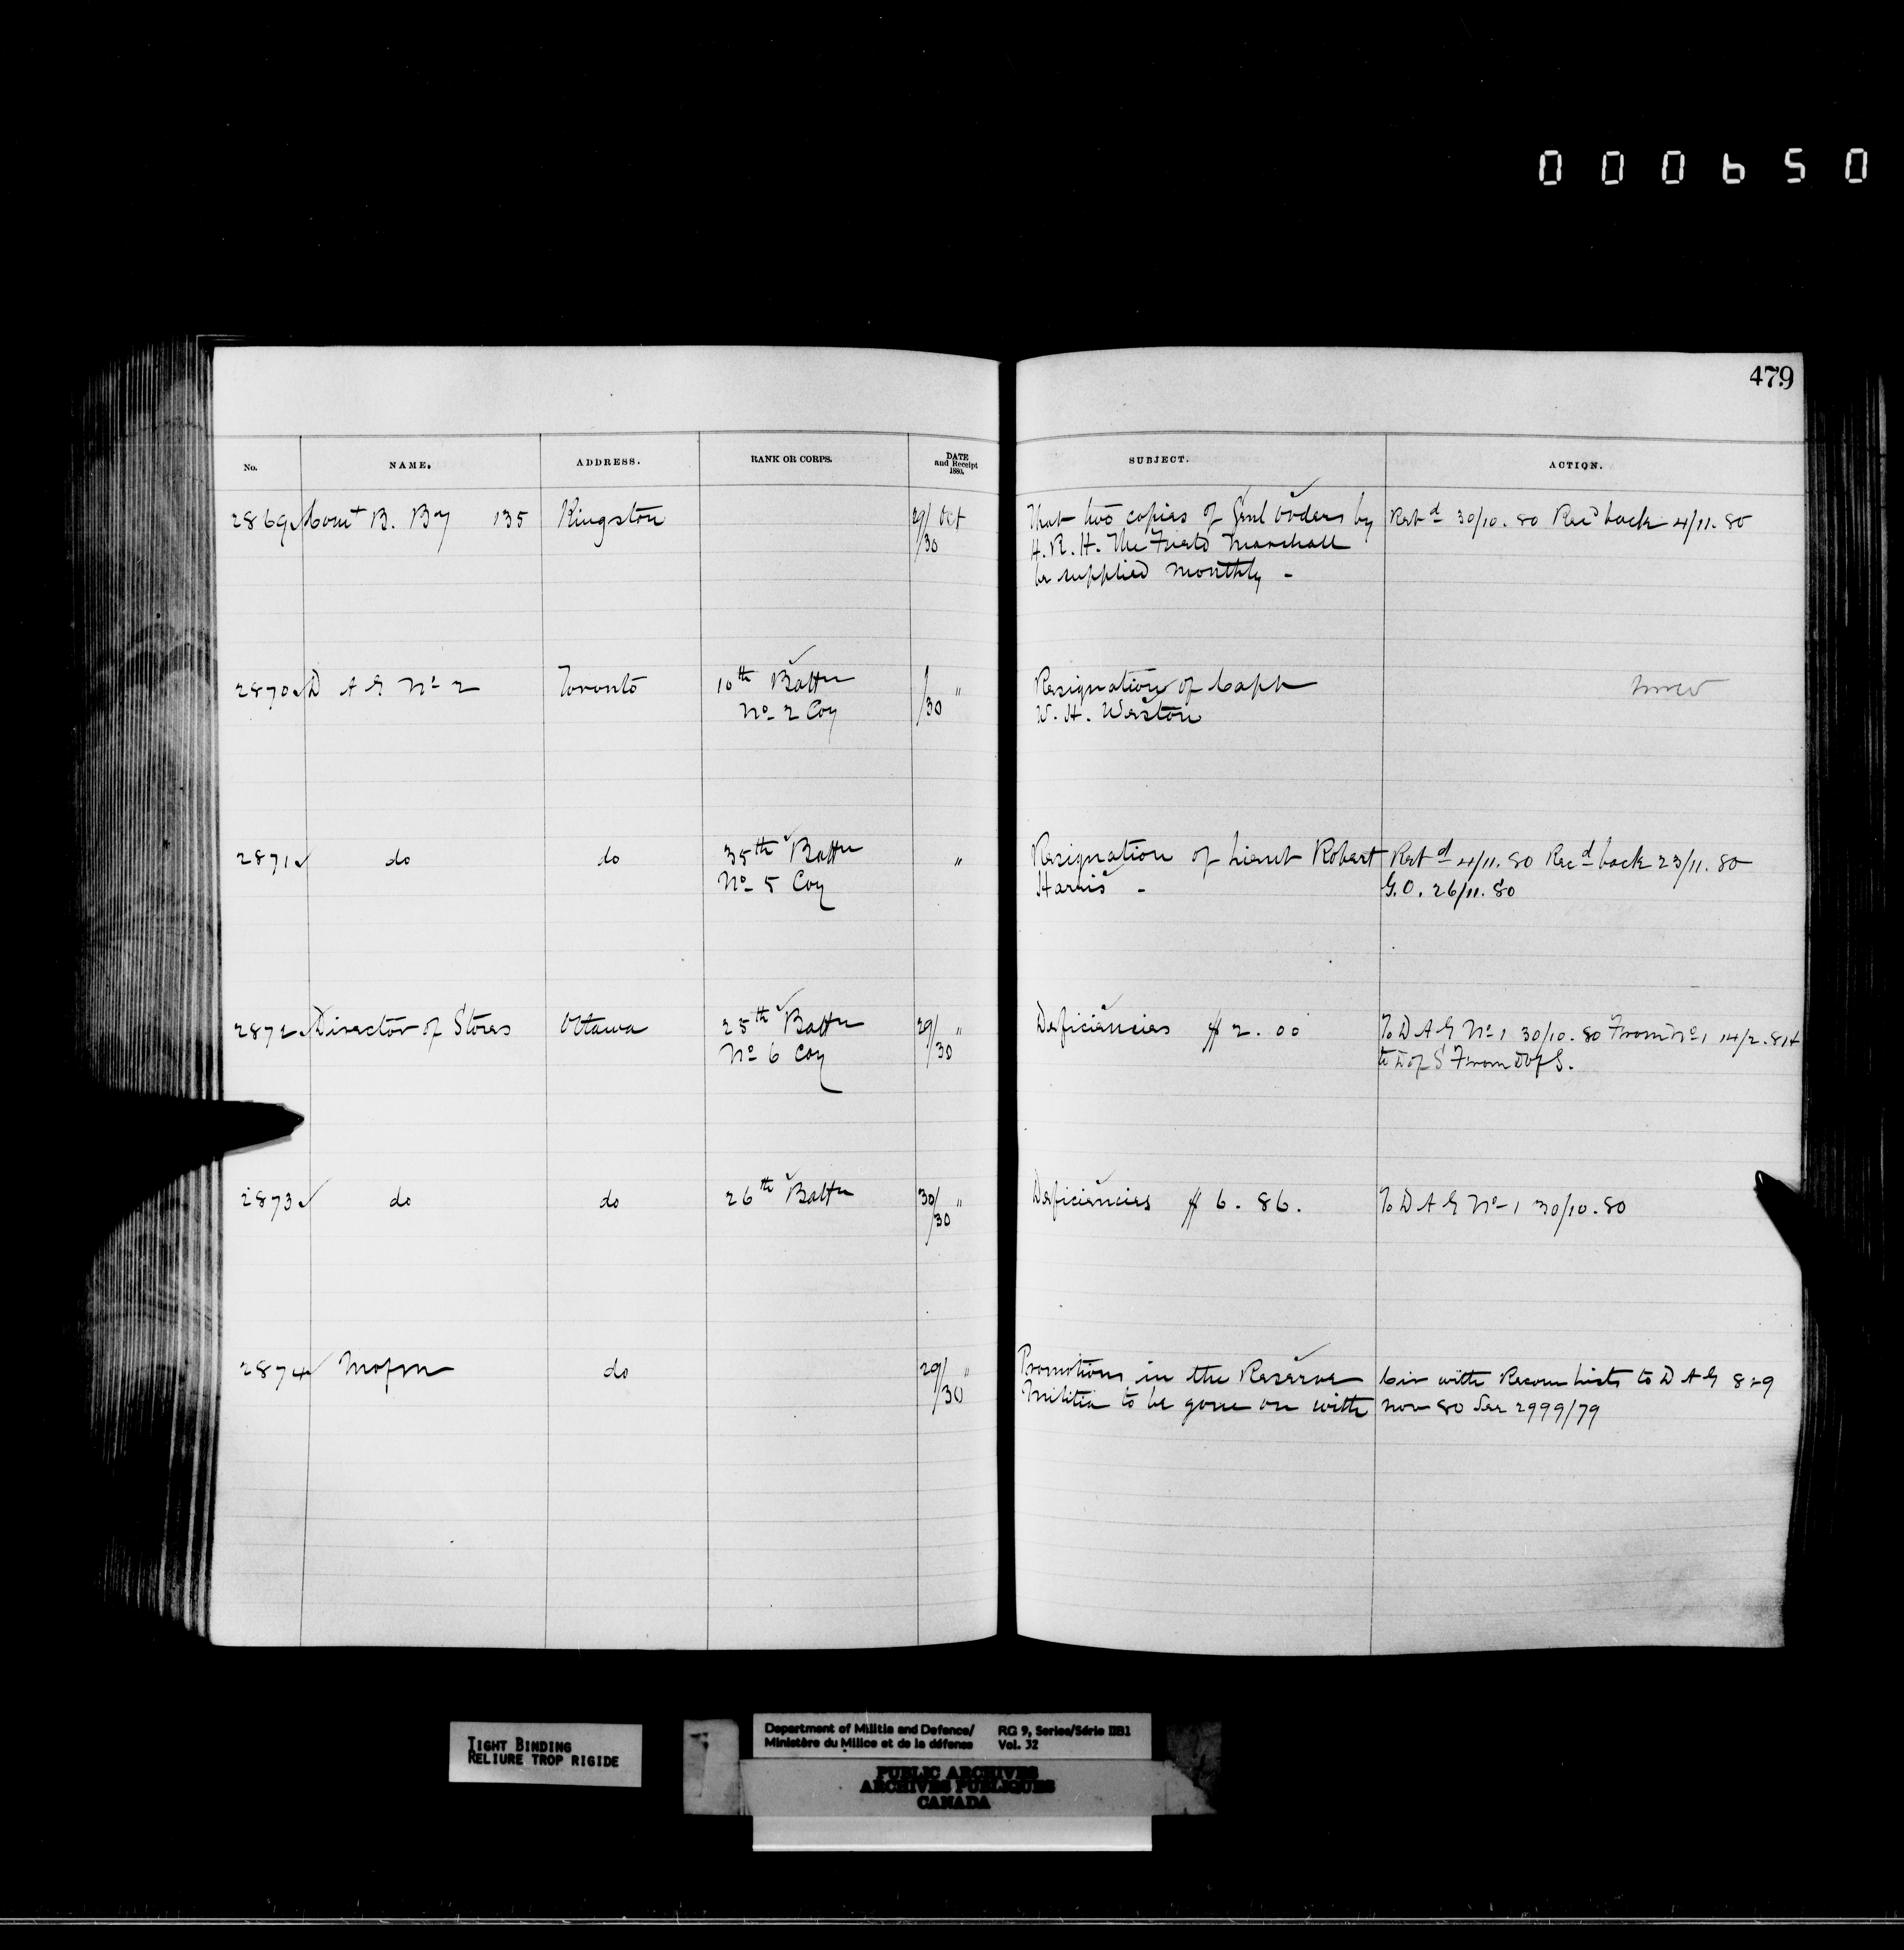 000650
479
No. NAME. ADDRESS. RANK OR CORPS. DATE and Receipt 1880. SUBJECT. ACTION.
2869 Comt B. By 135 Kingston 29/30 Oct That two copies of Genl Orders by Retd 30/10.80 Recd back 4/11.80
H.R.H. The Field Marshall
be supplied monthly -
2870 D A G No 2 Toronto 10th Battn /30 " Resignation of Capt
No 2 Coy W. H. Weston
2871 do do 35th Battn " Resignation of Lieut Robert Retd 4/11.80 Recd back 23/11.80
No 5 Coy Harris - G.O. 26/11.80
2872 Director of Stores Ottawa 25th Battn 29/30 " Deficiencies $2.00 To D A G No 1 30/10.80 From No 1 14/2.81 &
No 6 Coy to D of S From D of S.
2873 do do 26th Battn 30/30 " Deficiencies $6.86. To D A G No 1 30/10.80
2874 do 29/30 " Promotions in the Reserve Cir with Recom Lists to D A G 8 & 9
Militia to be gone on with Nov 80 See 2999/79
TIGHT BINDING
RELIURE TROP RIGIDE
Department of Militia and Defence/ RG 9, Series/Série IIB1
Ministère du Milice et de la défense Vol. 32
PUBLIC ARCHIVES
ARCHIVES PUBLIQUES
CANADA